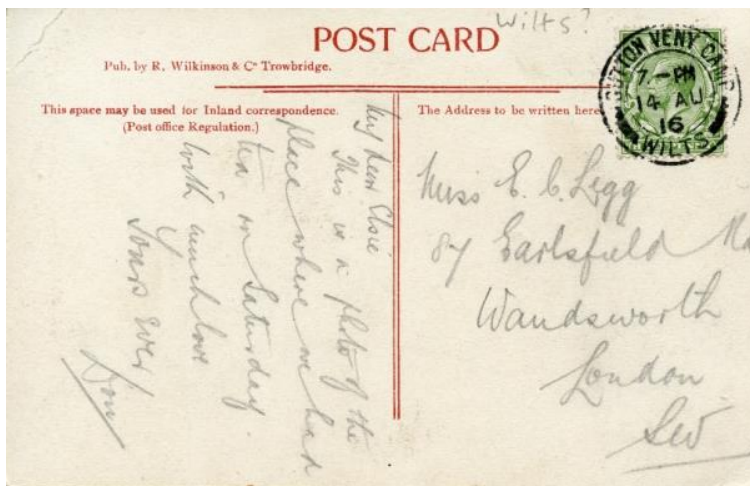 Wilts?
POST CARD
Pub. by R. Wilkinson & Co Trowbridge.
This space may be used for Inland correspondence.
(Post office Regulation.)
The Address to be written here
SUTTON VENY CAMP
7-PM
14 AU
16
WILTS
My dear Elsie
This is a photo of the
place where we had
tea on Saturday.
With much love
Yours ever
Dom
Miss E. C. Legg
87 Earlsfield
Wandsworth
London
SW